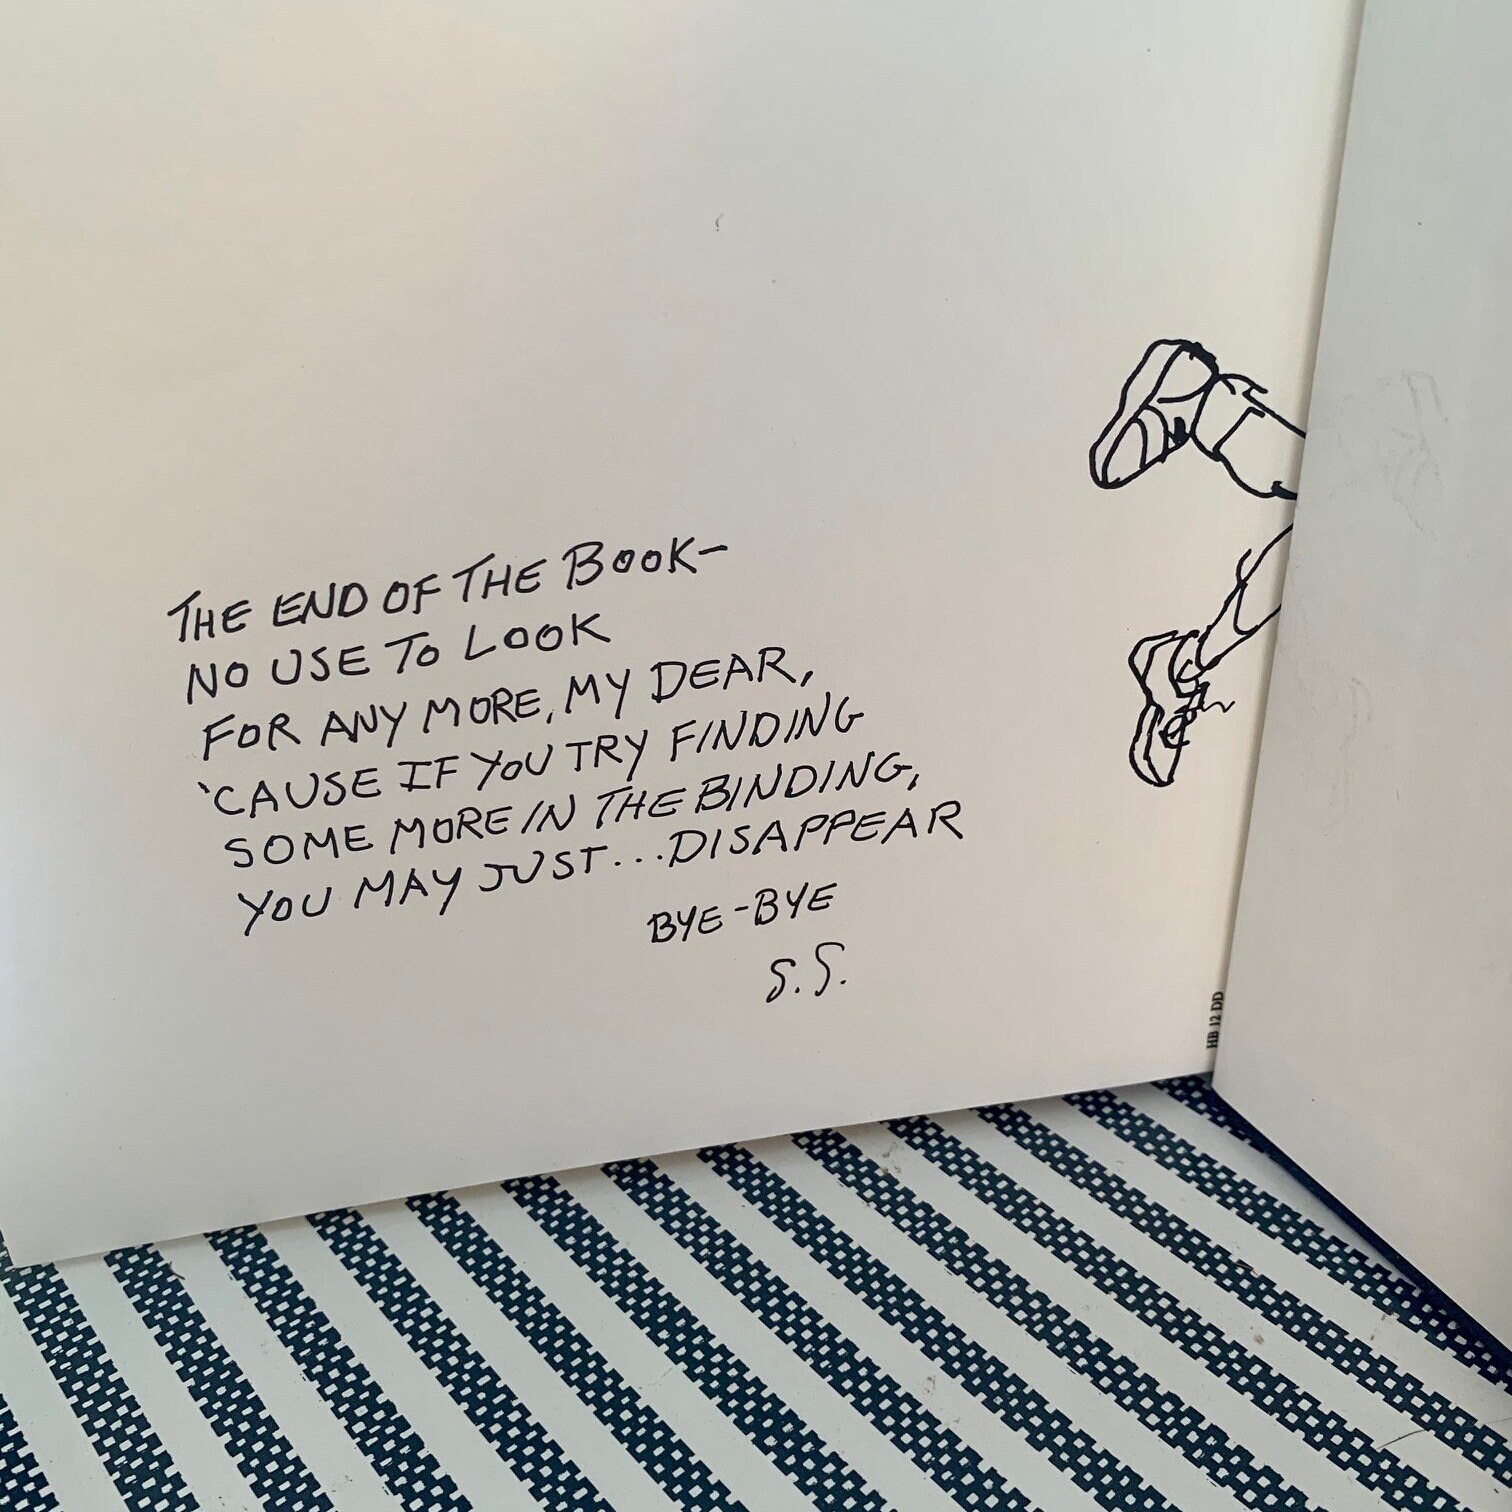 THE END OF THE BOOK–
NO USE TO LOOK
FOR ANY MORE, MY DEAR,
'CAUSE IF YOU TRY FINDING
SOME MORE IN THE BINDING,
YOU MAY JUST...DISAPPEAR
BYE-BYE
S.S.
HB 12 DD